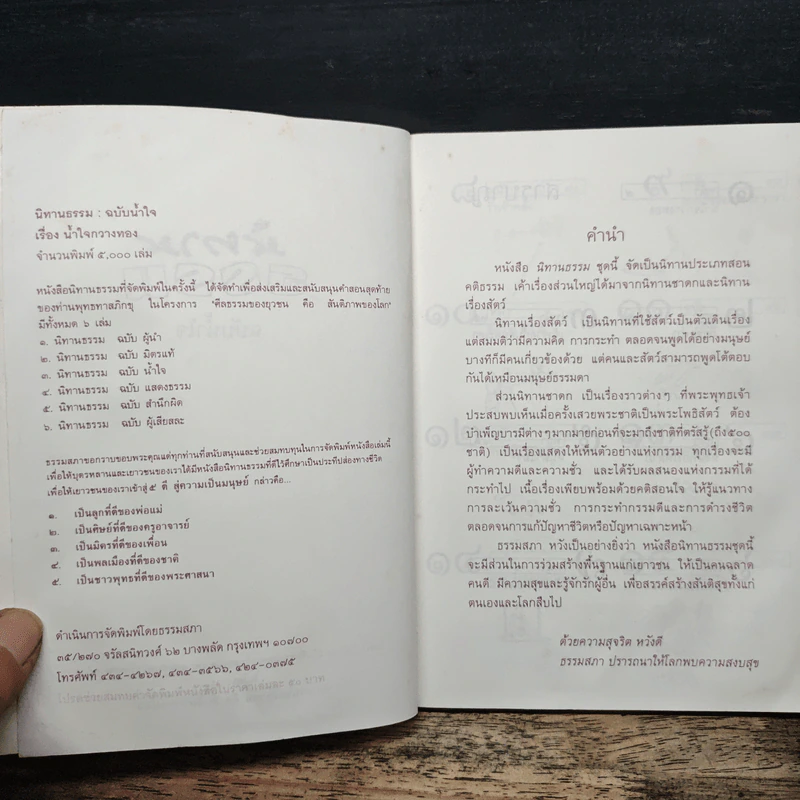 นิทานธรรม : ฉบับน้ำใจ
เรื่อง น้ำใจกวางทอง
จำนวนพิมพ์ ๕,๐๐๐ เล่ม
หนังสือนิทานธรรมที่จัดพิมพ์ในครั้งนี้ ได้จัดทำเพื่อส่งเสริมและสนับสนุนคำสอนสุดท้าย
ของท่านพุทธทาสภิกขุ ในโครงการ "ศีลธรรมของยุวชน คือ สันติภาพของโลก"
มีทั้งหมด ๖ เล่ม
๑. นิทานธรรม ฉบับ ผู้นำ
๒. นิทานธรรม ฉบับ มิตรแท้
๓. นิทานธรรม ฉบับ น้ำใจ
๔. นิทานธรรม ฉบับ แสดงธรรม
๕. นิทานธรรม ฉบับ สำนึกผิด
๖. นิทานธรรม ฉบับ ผู้เสียสละ
ธรรมสภาขอกราบขอบพระคุณแด่ทุกท่านที่สนับสนุนและช่วยสมทบทุนในการจัดพิมพ์หนังสือเล่มนี้
เพื่อให้บุตรหลานและเยาวชนของเราได้มีหนังสือนิทานธรรมที่ดีไว้ศึกษาเป็นประทีปส่องทางชีวิต
เพื่อให้เยาวชนของเราเข้าสู่ ๕ ดี สู่ความเป็นมนุษย์ กล่าวคือ...
๑. เป็นลูกที่ดีของพ่อแม่
๒. เป็นศิษย์ที่ดีของครูอาจารย์
๓. เป็นมิตรที่ดีของเพื่อน
๔. เป็นพลเมืองที่ดีของชาติ
๕. เป็นชาวพุทธที่ดีของพระศาสนา
ดำเนินการจัดพิมพ์โดยธรรมสภา
๓๕/๒๗๐ จรัลสนิทวงศ์ ๖๒ บางพลัด กรุงเทพฯ ๑๐๗๐๐
โทรศัพท์ ๔๓๔-๔๒๖๗, ๔๓๔-๓๕๖๖, ๔๒๔-๐๓๗๕
คำนำ
หนังสือ นิทานธรรม ชุดนี้ จัดเป็นนิทานประเภทสอน
คติธรรม เค้าเรื่องส่วนใหญ่ได้มาจากนิทานชาดกและนิทาน
เรื่องสัตว์
นิทานเรื่องสัตว์ เป็นนิทานที่ใช้สัตว์เป็นตัวเดินเรื่อง
แต่สมมติว่ามีความคิด การกระทำ ตลอดจนพูดได้อย่างมนุษย์
บางทีก็มีคนเกี่ยวข้องด้วย แต่คนและสัตว์สามารถพูดโต้ตอบ
กันได้เหมือนมนุษย์ธรรมดา
ส่วนนิทานชาดก เป็นเรื่องราวต่างๆ ที่พระพุทธเจ้า
ประสบพบเห็นเมื่อครั้งเสวยพระชาติเป็นพระโพธิสัตว์ ต้อง
บำเพ็ญบารมีต่างๆมากมายก่อนที่จะมาถึงชาติที่ตรัสรู้(ถึง๕๐๐
ชาติ) เป็นเรื่องแสดงให้เห็นตัวอย่างแห่งกรรม ทุกเรื่องจะมี
ผู้ทำความดีและความชั่ว และได้รับผลสนองแห่งกรรมที่ได้
กระทำไป เนื้อเรื่องเพียบพร้อมด้วยคติสอนใจ ให้รู้แนวทาง
การละเว้นความชั่ว การกระทำกรรมดีและการดำรงชีวิต
ตลอดจนการแก้ปัญหาชีวิตหรือปัญหาเฉพาะหน้า
ธรรมสภา หวังเป็นอย่างยิ่งว่า หนังสือนิทานธรรมชุดนี้
จะมีส่วนในการร่วมสร้างพื้นฐานแก่เยาวชน ให้เป็นคนฉลาด
คนดี มีความสุขและรู้จักรักผู้อื่น เพื่อสรรค์สร้างสันติสุขทั้งแก่
ตนเองและโลกสืบไป
ด้วยความสุจริต หวังดี
ธรรมสภา ปรารถนาให้โลกพบความสงบสุข